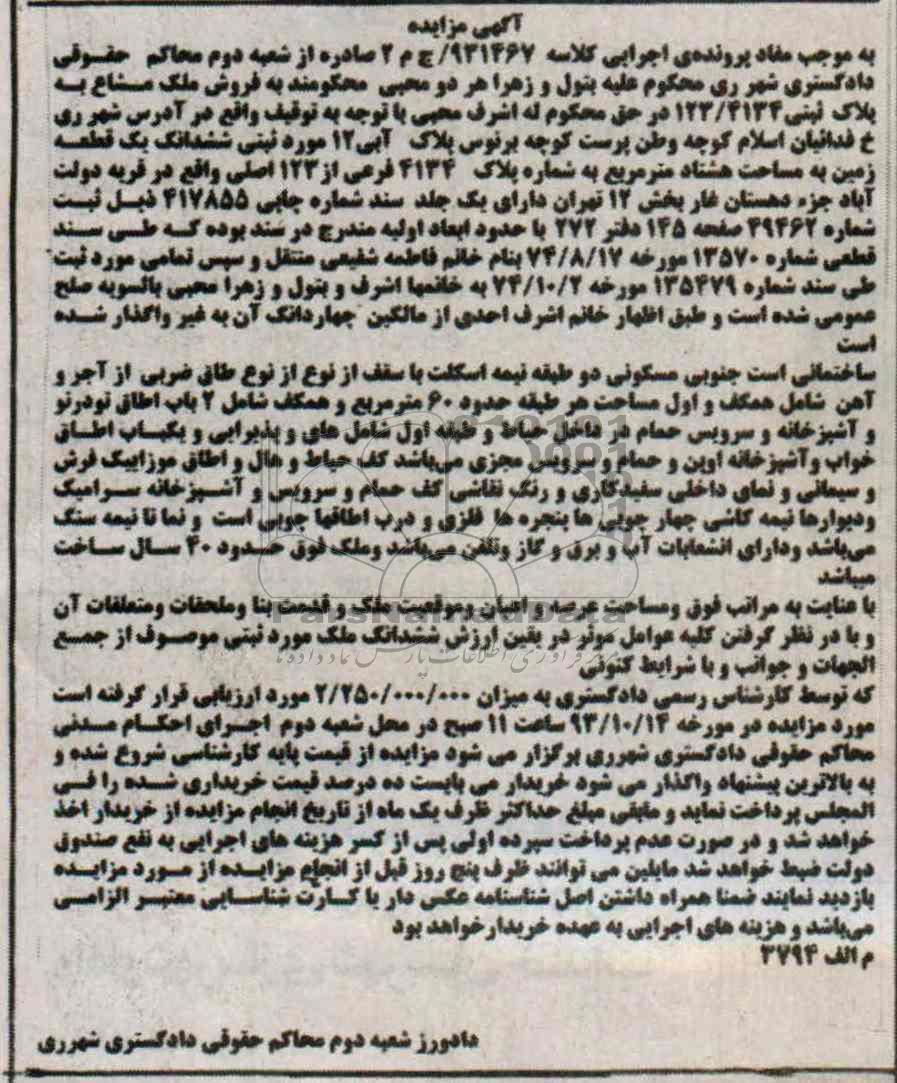 آگهی مزایده
به موجب مفاد پرونده‌ی اجرایی کلاسه ۹۳۱۴۶۷/ ج م ۲ صادره از شعبه دوم محاکم حقوقی
دادگستری شهر ری محکوم علیه بتول و زهرا هر دو محبی محکومند به فروش ملک مشاع به
پلاک ثبتی ۱۲۳/۴۱۳۴ در حق محکوم له اشرف محبی با توجه به توقیف واقع در آدرس شهر ری
خ فدائیان اسلام کوچه وطن پرست کوچه برنوس پلاک آبی۱۲ مورد ثبتی ششدانگ یک قطعه
زمین به مساحت هشتاد مترمربع به شماره پلاک ۴۱۳۴ فرعی از ۱۲۳ اصلی واقع در قریه دولت
آباد جزء دهستان غار بخش ۱۲ تهران دارای یک جلد سند شماره چاپی ۴۱۷۸۵۵ ذیل ثبت
شماره ۴۹۴۶۲ صفحه ۱۴۵ دفتر ۲۷۲ با حدود ابعاد اولیه مندرج در سند بوده که طی سند
قطعی شماره ۱۳۵۷۰ مورخه ۷۴/۸/۱۷ بنام خانم فاطمه شفیعی منتقل و سپس تمامی مورد ثبت
طی سند شماره ۱۳۵۴۷۹ مورخه ۷۴/۱۰/۲ به خانمها اشرف و بتول و زهرا محبی بالسویه صلح
عمومی شده است و طبق اظهار خانم اشرف احدی از مالکین چهاردانگ آن به غیر واگذار شده
است
ساختمانی است جنوبی مسکونی دو طبقه نیمه اسکلت با سقف از نوع از نوع طاق ضربی از آجر و
آهن شامل همکف و اول مساحت هر طبقه حدود ۶۰ مترمربع و همکف شامل ۲ باب اطاق تودرتو
و آشپزخانه و سرویس حمام در داخل حیاط و طبقه اول شامل های و پذیرایی و یکباب اطاق
خواب وآشپزخانه اوپن و حمام و سرویس مجزی می‌باشد کف حیاط و هال و اطاق موزاییک فرش
و سیمانی و نمای داخلی سفیدکاری و رنگ نقاشی کف حمام و سرویس و آشپزخانه سرامیک
ودیوارها نیمه کاشی چهار چوبی ها پنجره ها فلزی و درب اطاقها چوبی است و نما تا نیمه سنگ
می‌باشد ودارای انشعابات آب و برق و گاز وتلفن می‌باشد وملک فوق حدود ۴۰ سال ساخت
میباشد
با عنایت به مراتب فوق ومساحت عرصه و اعیان وموقعیت ملک و قدمت بنا وملحقات ومتعلقات آن
و با در نظر گرفتن کلیه عوامل موثر در یقین ارزش ششدانگ ملک مورد ثبتی موصوف از جمع
الجهات و جوانب و با شرایط کنونی
که توسط کارشناس رسمی دادگستری به میزان ۲/۲۵۰/۰۰۰/۰۰۰ مورد ارزیابی قرار گرفته است
مورد مزایده در مورخه ۹۳/۱۰/۱۴ ساعت ۱۱ صبح در محل شعبه دوم اجرای احکام مدنی
محاکم حقوقی دادگستری شهرری برگزار می شود مزایده از قیمت پایه کارشناسی شروع شده و
به بالاترین پیشنهاد واگذار می شود خریدار می بایست ده درصد قیمت خریداری شده را فی
المجلس پرداخت نماید و مابقی مبلغ حداکثر ظرف یک ماه از تاریخ انجام مزایده از خریدار اخذ
خواهد شد و در صورت عدم پرداخت سپرده اولی پس از کسر هزینه های اجرایی به نفع صندوق
دولت ضبط خواهد شد مایلین می توانند ظرف پنج روز قبل از انجام مزایده از مورد مزایده
بازدید نمایند ضمنا همراه داشتن اصل شناسنامه عکس دار یا کارت شناسایی معتبر الزامی
می‌باشد و هزینه های اجرایی به عهده خریدارخواهد بود
م الف ۳۷۹۴
دادورز شعبه دوم محاکم حقوقی دادگستری شهرری
ParsNamadData
مرکز فرآوری اطلاعات پارس نماد داده ها